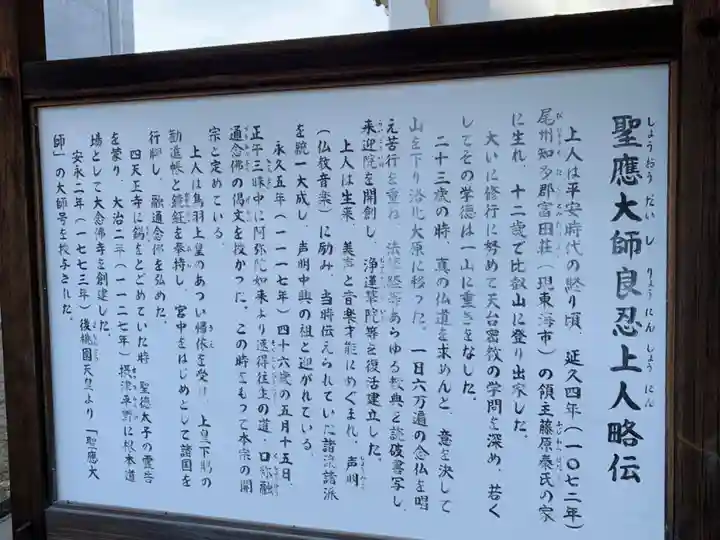 聖應大師良忍上人略伝
しょうおうだいし りょうにんしょうにん
上人は平安時代の終り頃、延久四年(一〇七二年)
尾州知多郡富田荘(現東海市)の領主藤原秦氏の家
に生れ、十二歳で比叡山に登り出家した。
大いに修行に努めて天台密教の学問を深め、若く
してその学徳は一山に重きをなした。
二十三歳の時、真の仏道を求めんと、意を決して
山を下り洛北大原に移った。一日六万遍の念仏を唱
え苦行を重ね、法華経等あらゆる教典を読破書写し、
来迎院を開創し、浄蓮華院等を復活建立した。
上人は生来、美声と音楽才能にめぐまれ、声明
(仏教音楽)に励み、当時伝えられていた諸流諸派
を統一大成し、声明中興の祖と迎がれている。
永久五年(一一一七年)四十六歳の五月十五日、
正午三昧中に阿弥陀如来より速得往生の道、口称融
通念佛の偈文を授かった。この時をもって本宗の開
宗と定めている。
上人は鳥羽上皇のあつい帰依を受け、上皇下賜の
勧進帳と鏡鉦を奉持し、宮中をはじめとして諸国を
行脚し、融通念佛を弘めた。
四天王寺に錫をとどめていた時、聖徳太子の霊告
を蒙り、大治二年(一一二七年)摂津平野に根本道
場として大念佛寺を創建した。
安永二年(一七七三年)後桃園天皇より「聖應大
師」の大師号を授与された。